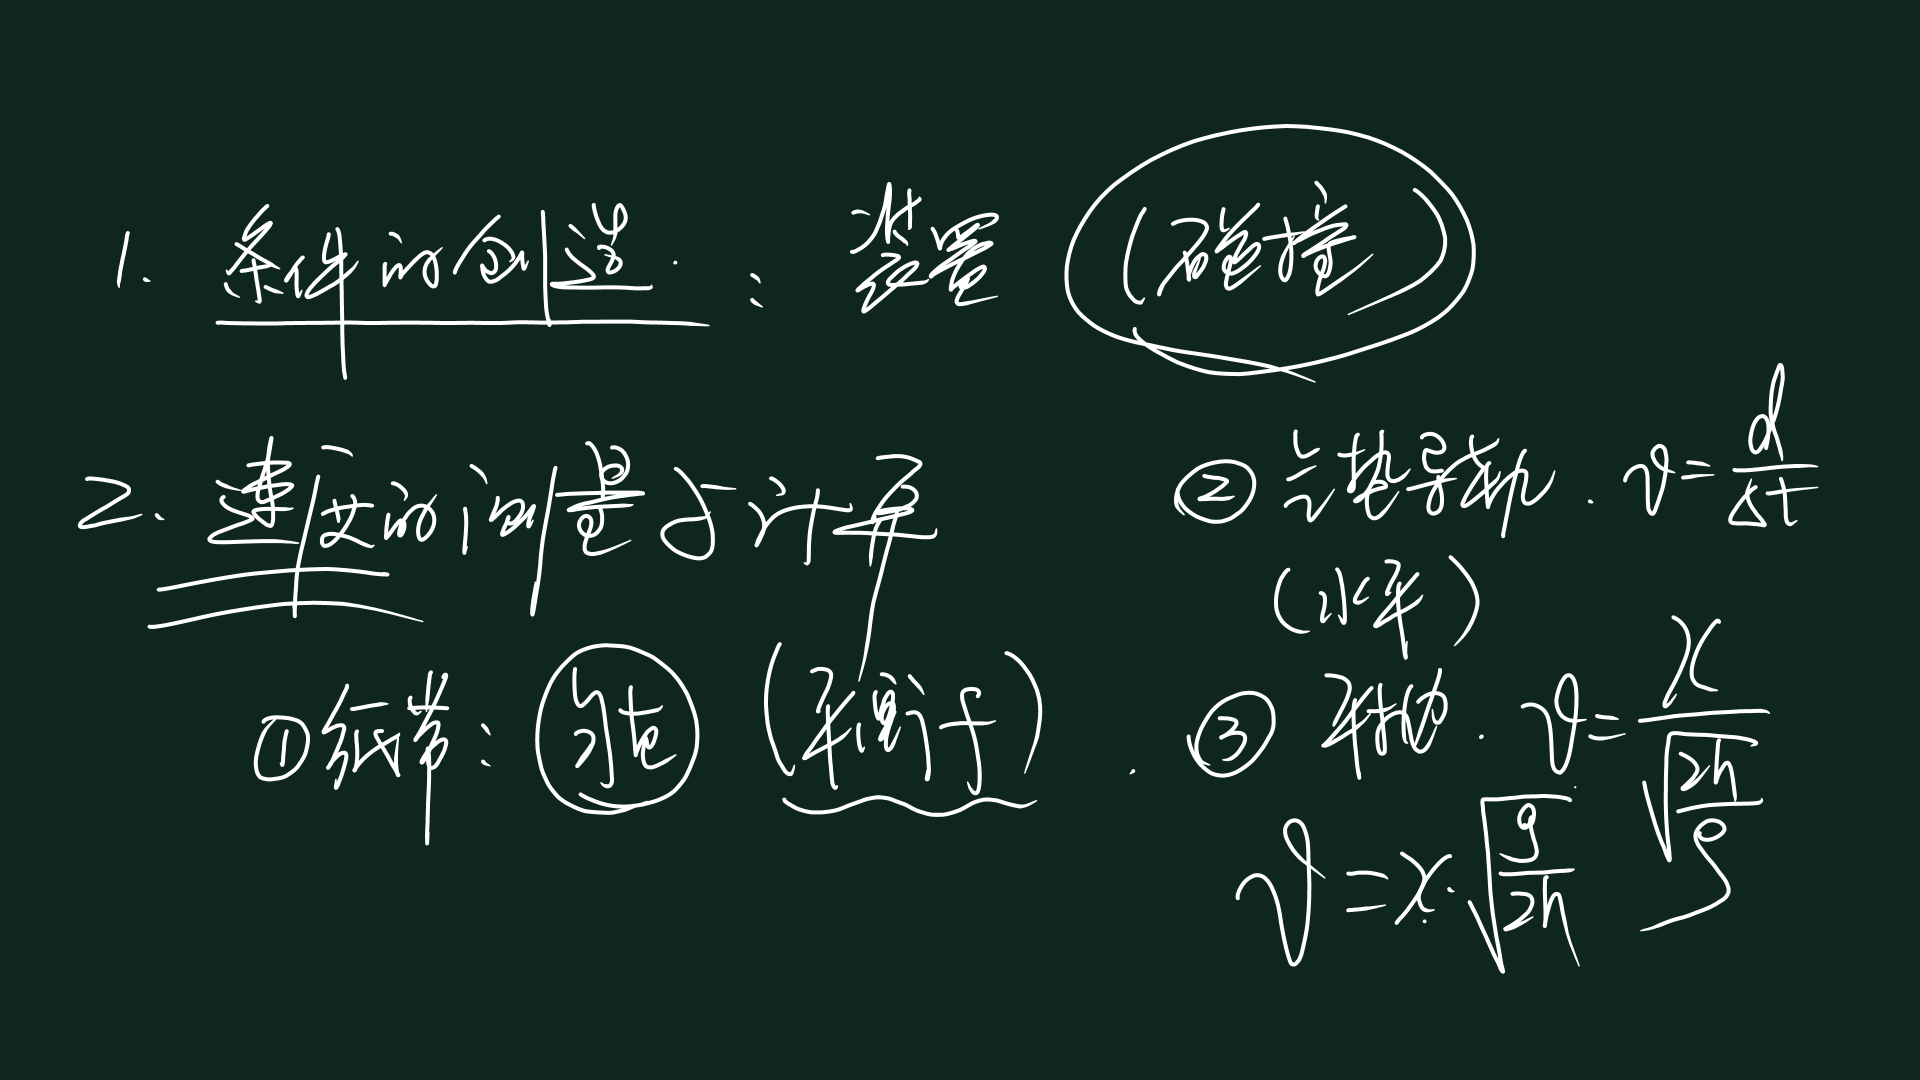 1. 条件的创造 : 装置 (碰撞)
2. 速度的测量与计算
①纸带: 匀速 (平衡f)
② 气垫导轨. v=d/Δt
(水平)
③ 平抛. v=x/√(2h/g)
v=x·√(g/2h)